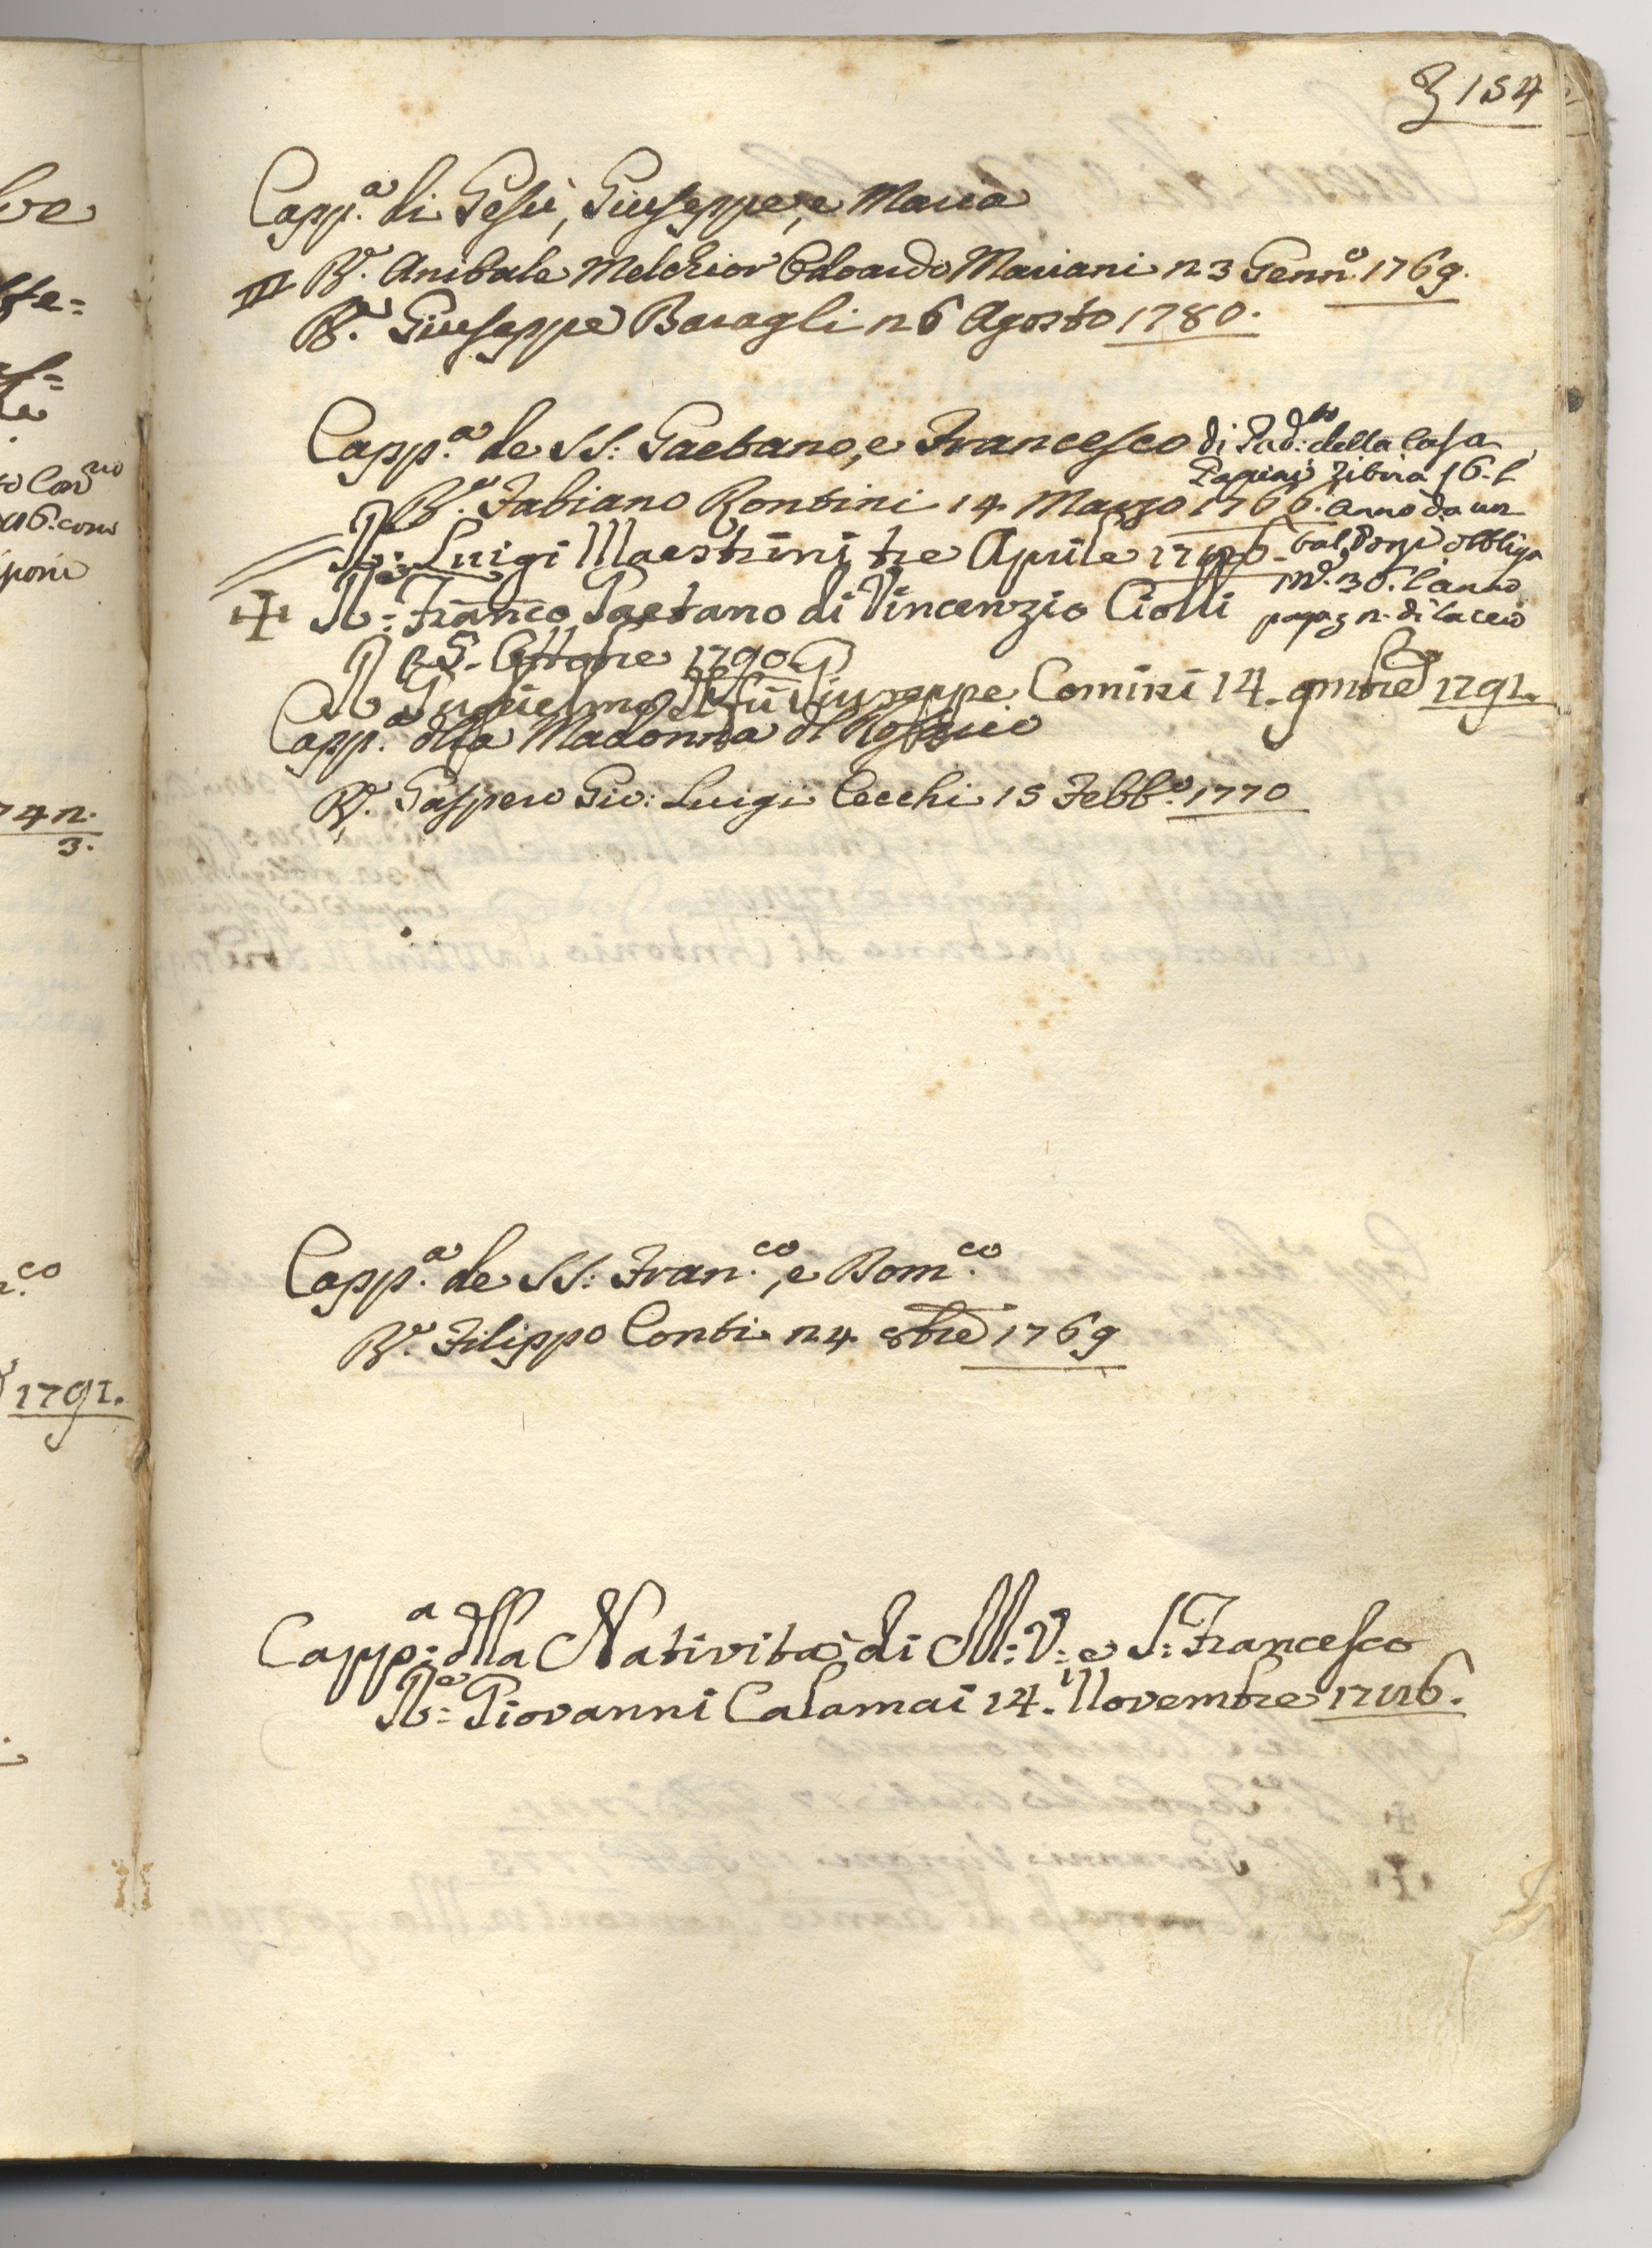 154
Capp.a di Gesù, Giuseppe, e Maria
R.e Anibale Melchior Odoardo Mariani n 3 Genn.o 1769.
R.e Giuseppe Baragli n 6 Agosto 1780.
Capp.a de SS: Gaetano, e Francesco di Pad: della Casa
R.e Fabiano Rontini 14 Marzo 1766. anno da un
R.e Luigi Maestrini tre Aprile obbliga
R.e Fran͞co Gaetano di Vincenzio Ciolli l'anno
Ottobre 1790
Guglielmo Giuseppe Comini 14. 9mbre 1791.
Capp.a dlla Madonna dl Rosario
R.e Gaspero Gio: Luigi Cecchi 15 Febb.o 1770
Capp.a de SS: Fran.co, e Dom.co
R.e Filippo Conti n 4 8bre 1769
Capp.a dlla Natività di M: V: e S: Francesco
R.e Giovanni Calamai 14. Novembre
ve
1791.